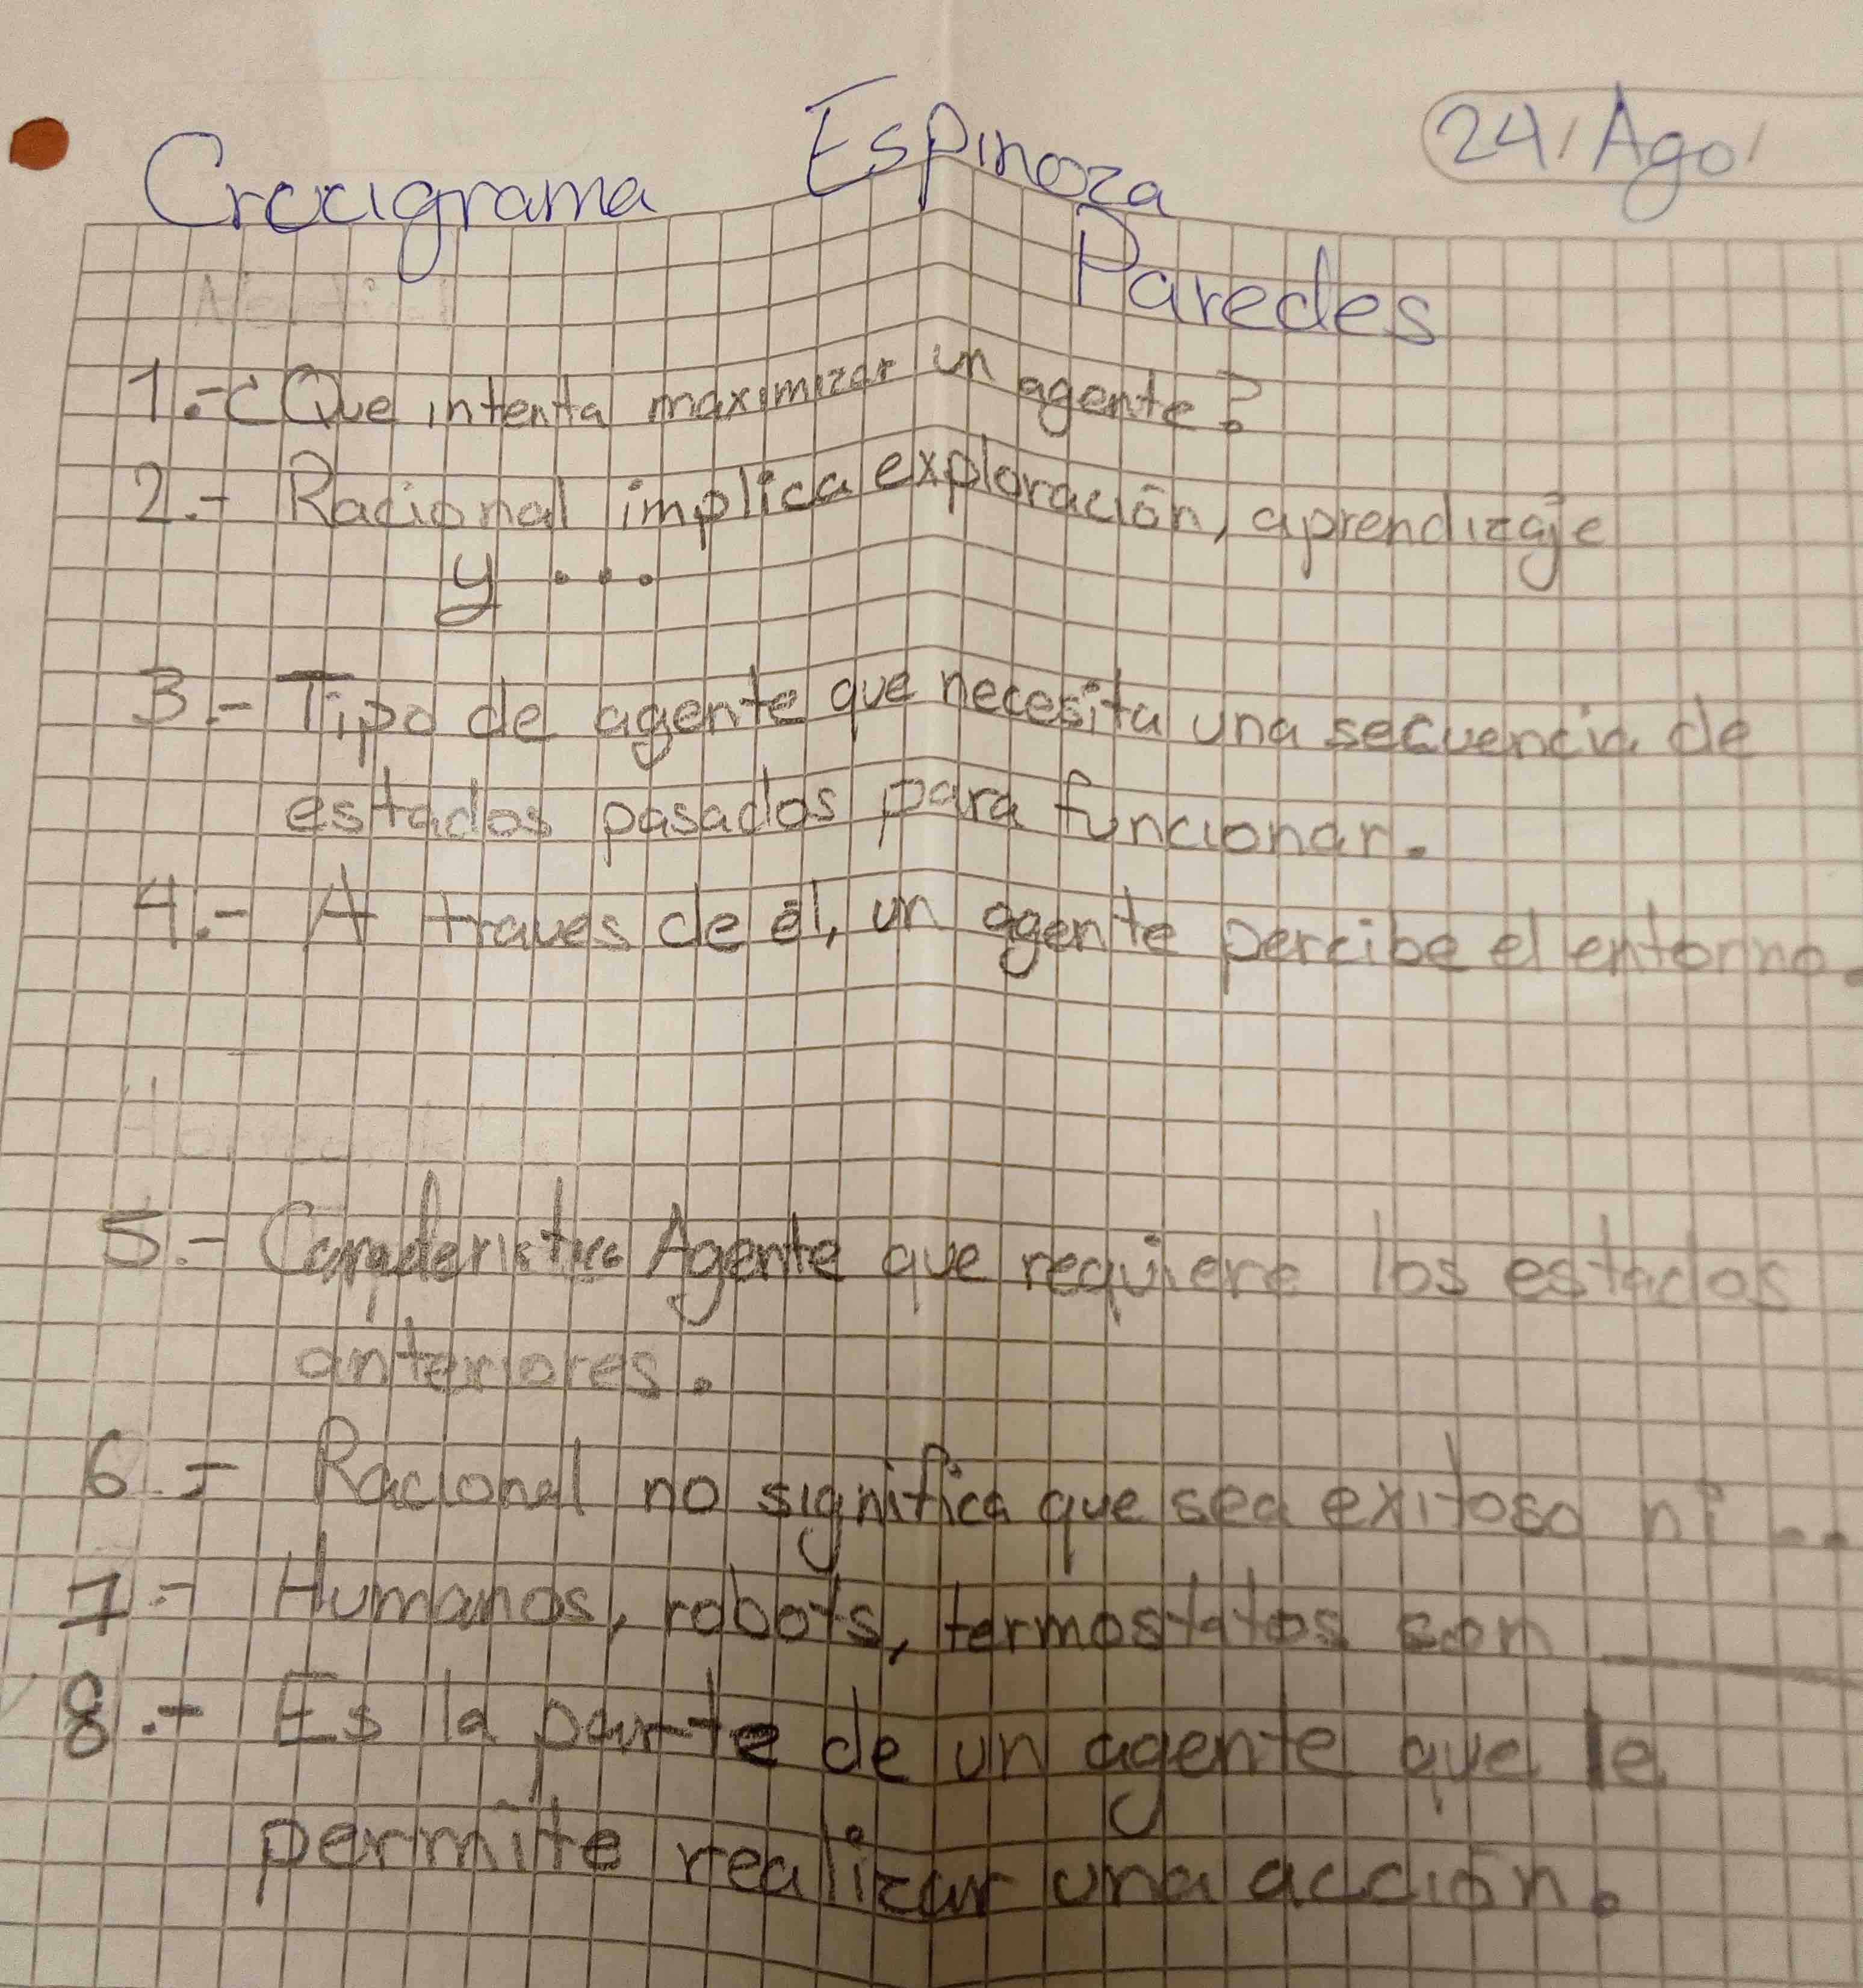 Crucigrama Espinoza
Paredes
24/Ago/
1.-¿Que intenta maximizar un agente?
2.- Racional implica exploración, aprendizaje
y ...
3.- Tipo de agente que necesita una secuencia de
estados pasados para funcionar.
4.- A traves de él, un agente percibe el entorno.
5.- Agente que requiere los estados
anteriores.
6.- Racional no significa que sea exitoso ni ..
7.- Humanos, robots, termostatos son ____
8.- Es la parte de un agente que le
permite realizar una acción.